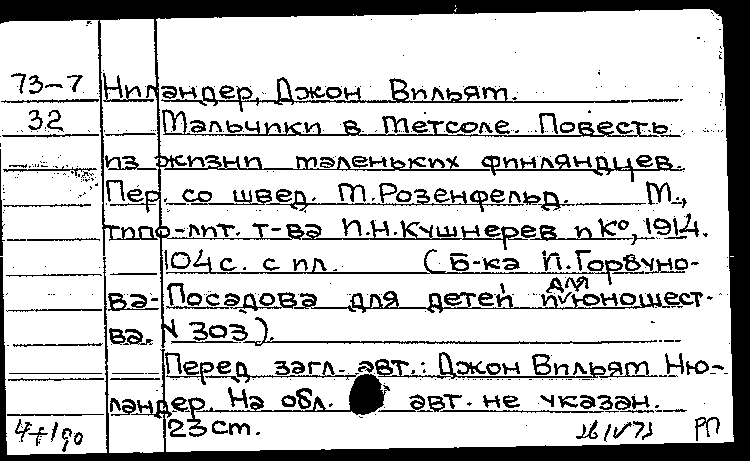 73-7 Ниландер, Джон Вильям.
32 Мальчики в Метсоле. Повесть
из жизни маленьких финляндцев.
Пер. со швед. М.Розенфельд. М.,
типо-лит. т-ва И.Н.Кушнерев и К⁰, 1914.
104 с. с ил. (Б-ка И.Горбуно-
ва-Посадова для детей и для юношест-
ва. № 303).
Перед загл. авт.: Джон Вильям Ню-
ландер. На обл. авт. не указан.
23 см. РП